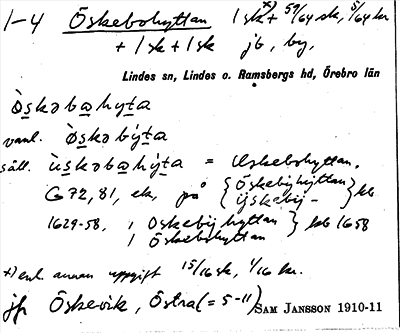 1-4 Öskebohyttan 1 sk *) + 59/64 sk, 5/64 kr
+ 1 sk + 1 sk jb, by,
Lindes sn, Lindes o. Ramsbergs hd, Örebro län
ò̤skəbo̤hyt̲a
vanl. ò̤skəbýt̲a
säll. ùskəbo̤hýt̲a = Uskebohyttan.
G 72, 81, ek, på { Öskebijhyttan } kb
ijskebij-
1629-58, 1 Oskebij hyttan } kb 1658
1 Öskebohyttan
*) enl. annan uppgift 15/16 sk, 1/16 kr.
jfr Öskevik, Östra (= 5-11) SAM JANSSON 1910-11